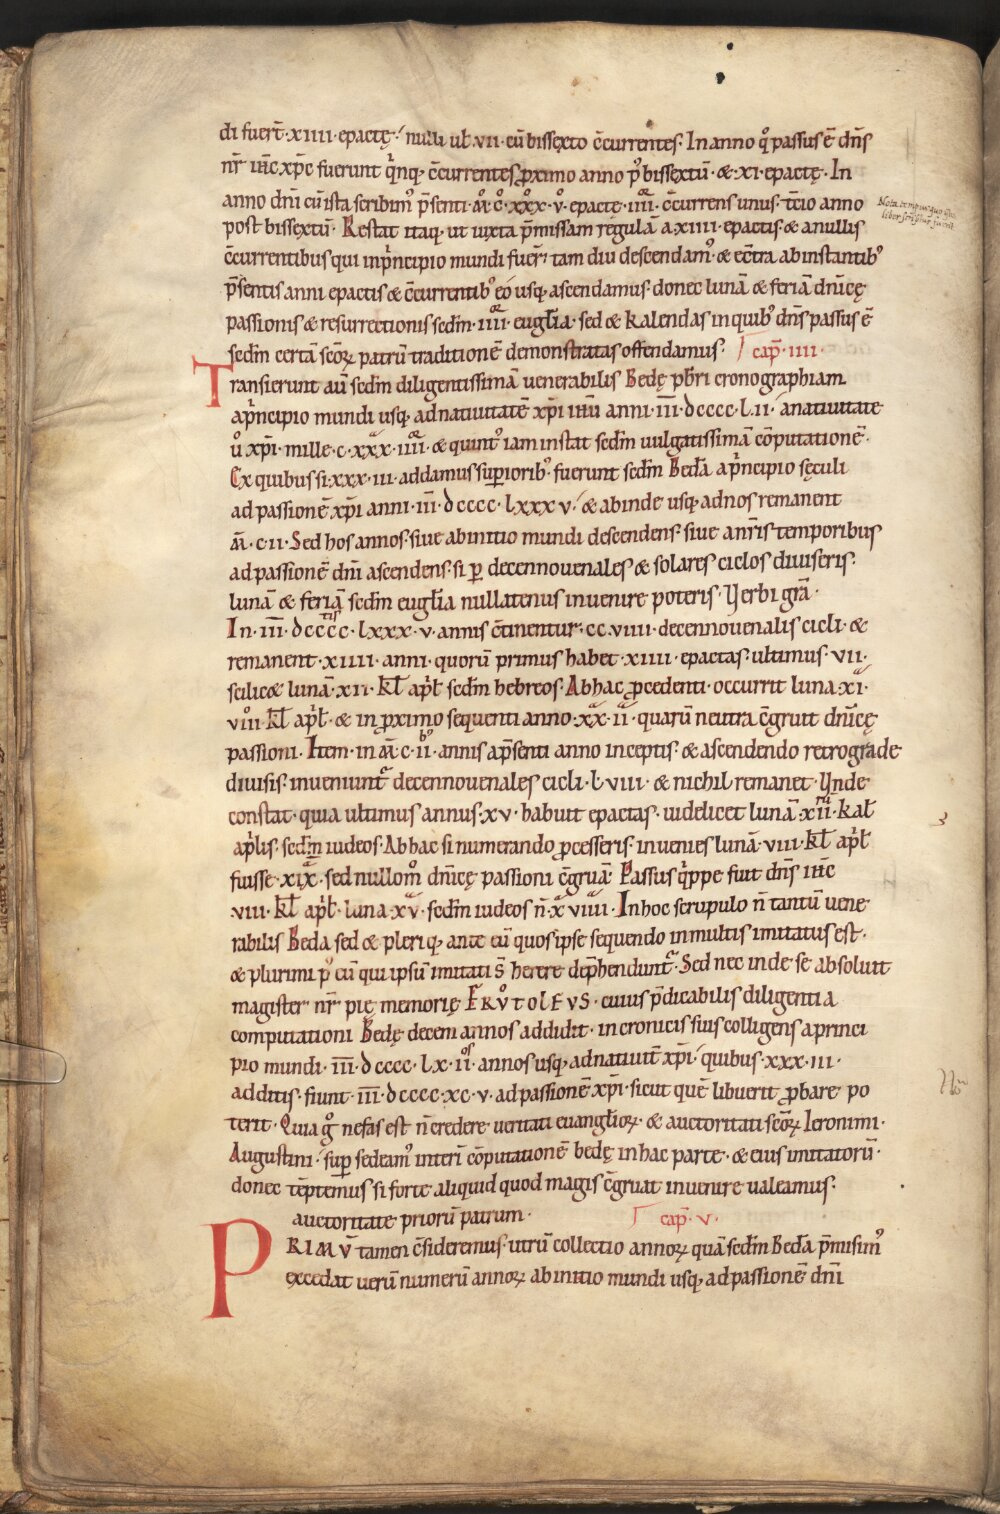 di fuer̄t·xiiii·epactę; nulli ul̄·vii·cū bissexto c̄currentes· In anno qͦ passus ē dn̄s
nr̄ ih̄c xp̄c fuerunt qͥnq; c̄currentes ꝓximo anno pꝰ bissextū·&·xi·epactę· In
anno dn̄i cū ista scribimꝰ p̄senti·Mͦ·cͦ·xxxͦ·vͦ·epactę·iiii·c̄currens unus·t̄cio anno
Nota tempus quo
post bissextū· Restat itaq; ut iuxta p̄missam regulā a xiiii·epactis·& a nullis
c̄currentibus qui in pͥncipio mundi fuer̄ tam diu descendamꝰ·& ec̄tra ab instantibꝰ
p̄sentis anni epactis & c̄currentibꝰ eo usq; ascendamus·donec lunā & feriā dn̄icę
passionis & resurrectionis sedm̄·iiii·eugl̄ia·sed & kalendas in quibꝰ dn̄s passus ē
sedm̄ certā sc̄oꝝ patrū traditionē demonstratas offendamus· cap̄·iiii·
Transierunt aū sedm̄ diligentissimā uenerabilis Bedę pb̄ri cronographiam
a pͥncipio mundi usq; ad natiuitatē xp̄i ih̄u anni·iii̅·dcccc·l·ii· a natiuitate
uͦ xp̄i·mille·c·xxx·iiii·& quintꝰ iam instat sedm̄ uulgatissimā cōputationē·
Ex quibus si·xxx·iii·addamus supioribꝰ·fuerunt sedm̄ Bedā a pͥncipio sęculi
ad passionē xp̄i anni·iii̅·dcccc·lxxxv· & abinde usq; ad nos remanent
M̄·c·ii· Sed hos annos·siue ab initio mundi descendens·siue a nr̄is temporibus
ad passionē dn̄i ascendens·si ꝑ decennouenales & solares ciclos diuiseris·
lunā & feriā sedm̄ eugl̄ia nullatenus inuenire poteris· Verbi grā·
In·iii̅·dcccc·lxxx·v·annis c̄tinentur·cc·viiii·decennouenalis cicli·&
remanent·xiiii·anni·quorū primus habet·xiiii·epactas·ultimus·vii·
scilic& lunā·xii·kl̄ apͥl̄ sedm̄ hebreos· Ab hac ꝓcedenti·occurrit luna·xi·
viiiͦ·kl̄ apͥl̄·& in ꝓximo sequenti anno·xx·ii·quarū neutra c̄gruit dn̄icę
passioni· Item·in M̄·c·ii·annis a p̄senti anno inceptis·& ascendendo retrograde
diuisis·inueniunt᷑ decennouenales cicli·l·viii·& nichil remanet· Vnde
constat·quia ultimus annus·xv·habuit epactas·uidelicet lunā·xii·kal̄
apͥlis·sedm̄ iudeos· Ab hac si numerando ꝓcesseris·inuenies lunā·viii·kl̄ apͥl̄
fuisse·xix·sed nullomͦ dn̄icę passioni c̄gruā· Passus qͥppe fuit dn̄s ih̄c
·viii·kl̄ apͥl̄·luna·xv·sedm̄ iudeos n̄·xviiii· In hoc scrupulo n̄ tantū uene
rabilis Beda sed & pleriq; ante eū quos ipse sequendo in multis imitatus est·
& plurimi pꝰ eū qui ipsū imitati s̄ herere dep̄hendunt᷑· Sed nec inde se absoluit
magister nr̄ pię memorię FRVTOLFVS·cuius p̄dicabilis diligentia
computationi Bedę decem annos addidit·in cronicis suis colligens a princi
pio mundi·iii̅·dcccc·lx·ii·annos usq; ad natiuit̄ xp̄i·quibus·xxx·iii·
additis·fiunt·iii̅·dcccc·xc·v·ad passionē xp̄i·sicut quē libuerit ꝓbare po
terit· Quia gͦ nefas est n̄ credere ueritati euangl̄ioꝝ·& auctoritati sc̄oꝝ Ieronimi·
Augustini·sup̄sedeamꝰ interī cōputationē bedę in hac parte·& eius imitatorū·
donec tēptemus si forte aliquid quod magis c̄gruat inuenire ualeamus·
auctoritate priorū patrum· cap̄·v·
PRIMV̄ tamen c̄sideremus·utrū collectio annoꝝ quā sedm̄ Bedā p̄misimꝰ
excedat uerū numerū annoꝝ ab initio mundi usq; ad passionē dn̄i